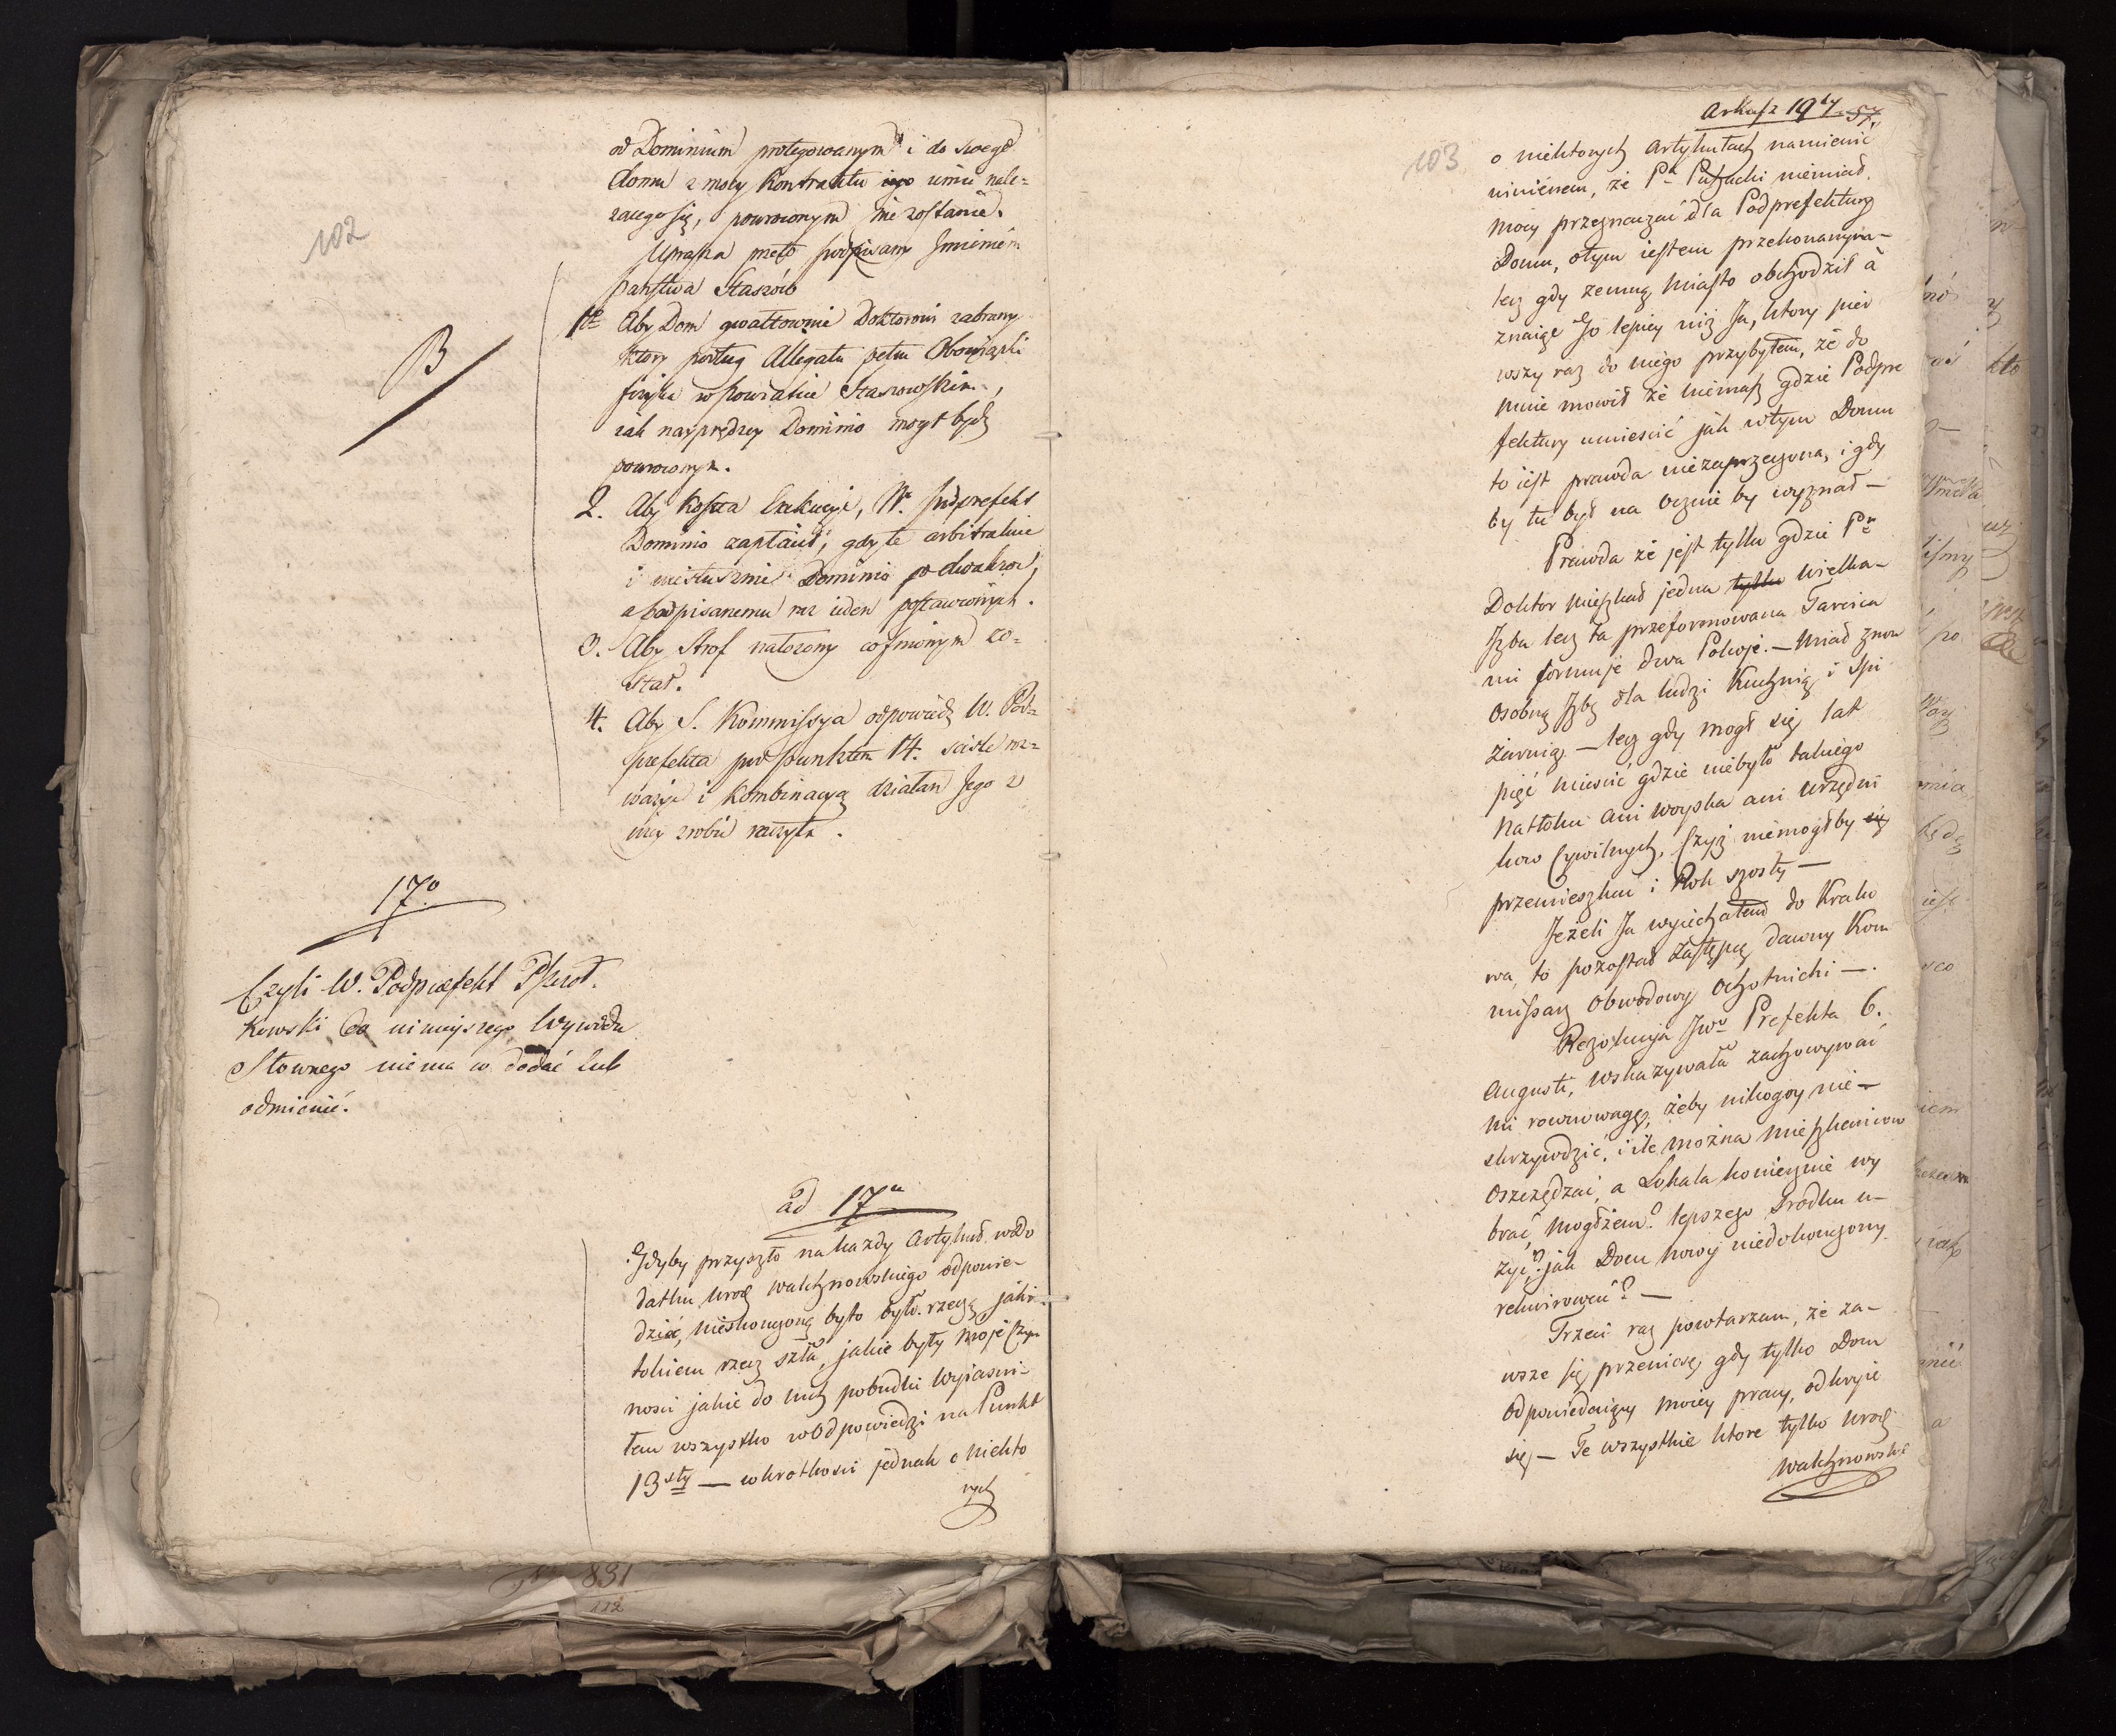 102
od Dominium protegowanym i do swego
domu z mocy Kontraktu iego iemu nale=
zacego się, powroconym nie zostanie.
Uprasza przeto podpisany Imieniem
Państwa Staszów
B
1o Aby Dom gwałtownie Doktorowi zabrany
ktory podług Allegatu pełni Obowiązki
fizyka w powiatie Staszowskim,
iak nayprędzey Dominio mogł bydz
powroconym.
2. Aby koszta Exekucyi, W. podprefekt
Dominio zapłacił, gdy te arbitralnie
i niesłusznie Dominio po dwakroć,
a podpisanemu raz ieden postawionych.
3. Aby Strof nałozony cofnionym zo=
stał.
4. Aby S. Kommissya odpowiedz W. Pod=
prefekta pod punktem 14. scisle roz=
ważyć i kombinacyą działan Jego z
niey zrobić raczyła.
17o
Czyli W. Podprefekt Pszrot.
kowski do ninieyszego Wywodu
Słownego nie ma co dodać lub
odmienić.
ad 17m
Gdyby przyszło na kazdy Artykuł wodo
datku Urog Walchnowskiego odpowie-
dzieć, nieskonczoną było było rzeczą, jakie
tokiem rzecz szła, jakie były moje Czyn
nosci jakie do nich pobudki wyiasni-
łem wszystko w odpowiedzi na Punkt
13sty — w krotkosci jednak o niekto
rych
103
Arkusz 19ty 57.
o niektorych Artykułach namienić
winienem, że Pn Pusucki niemiał
mocy przeznaczać dla Podprefektury
Domu, o tym iestem przekonanym—
lecz gdy zemną Miasto obchodził a
znaiąc Jo lepiey niż Ja, ktory pier
wszy raz do niego przybyłem, że do
mnie mowił że niemasz gdzie Podpre
fektury umiescić jak w tym Domu
to iest prawda niezaprzeczona, i gdy
by tu był na ocznie by wyznał—
Prawda że jest tylko gdzie Pn
Doktor mieszkał jedna tylko wielka—
Jzba lecz ta przeforowana Tarcica
mi formuje dwa Pokoje.— Miał znow
osobną Jzbę dla ludzi Kuchnią i Spi
żarnią — lecz gdy mogł się lat
pięć miescić gdzie niebyło takiego
natłoku ani woyska ani Urzędni
kow Cywilnych, Czyż niemogłby się
przemieszkać i Rok szosty —
Jeżeli Ja wyiechałem do Krako
wa, to pozostał Zastępcą dawny Kom
missarz Obwodowy Ochotnicki —.
Rezolucyja JWo Prefekta 6.
Augusti, wskazywała zachowywać
mi rownowagę, żeby nikogoy nie—
skrzywdzić, i ile można mieszkancow
oszczędzać, a Lokala koniecznie wy
brać, mogłżem? lepszego srodku u—
żyć? jak Dom nowy niedokonczony
rekwirować? —
Trzeci raz powtarzam, że za—
wsze się przeniosę gdy tylko Dom
odpowiedaiący moiey pracy, odkryie
się — Te wszystkie ktore tylko Urog
Walchnowski
831
112